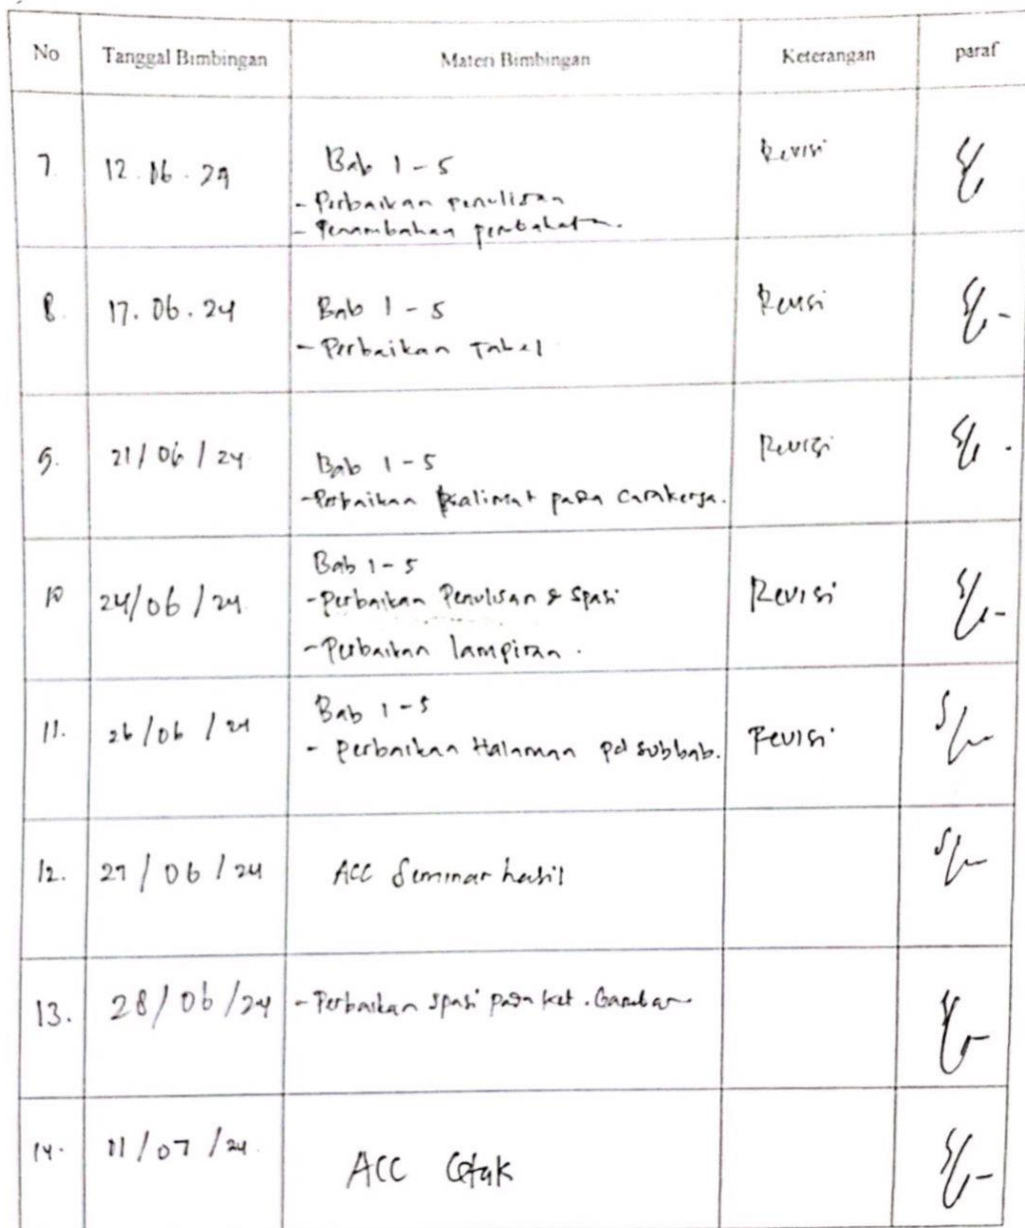 No Tanggal Bimbingan Materi Bimbingan Keterangan paraf
7. 12.06.24 Bab 1-5 Revisi
- Perbaikan penulisan
- Penambahan pembahasan.
8. 17.06.24 Bab 1-5 Revisi
- Perbaikan Tabel
9. 21/06/24 Bab 1-5 Revisi
- Perbaikan kalimat pada carakerja.
10 24/06/24 Bab 1-5 Revisi
- Perbaikan Penulisan & Spasi
- Perbaikan lampiran.
11. 26/06/24 Bab 1-5 Revisi
- Perbaikan Halaman pd subbab.
12. 27/06/24 ACC Seminar hasil
13. 28/06/24 - Perbaikan spasi pada ket. Gambar
14. 01/07/24. ACC Cetak